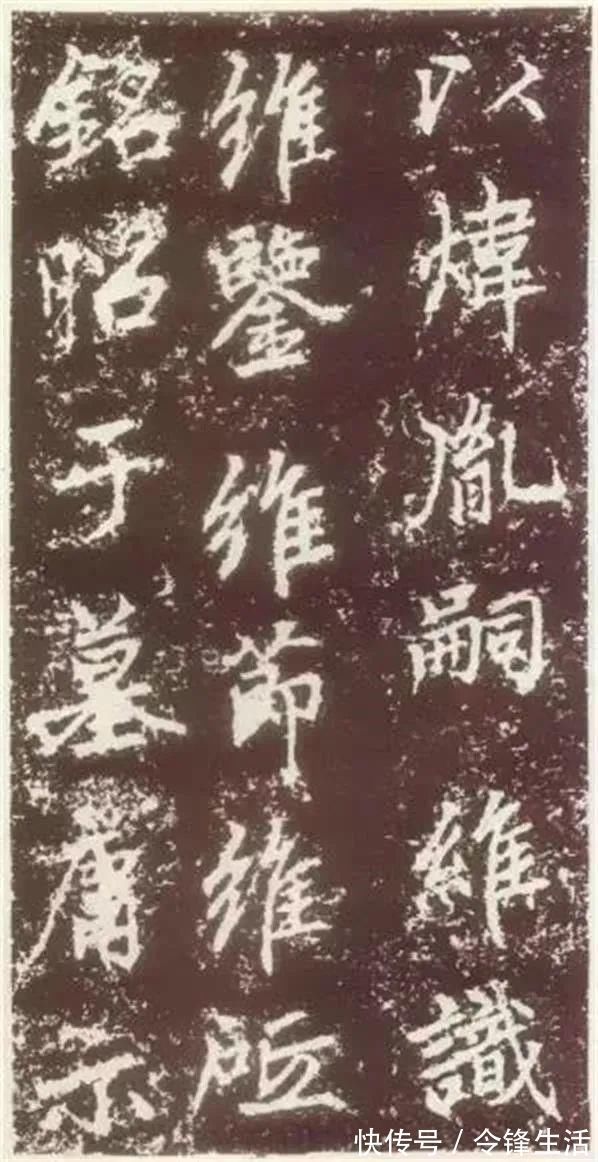 以煒胤嗣維識
維鑒維節維
銘昭于墓庸示
快传号 / 令锋生活